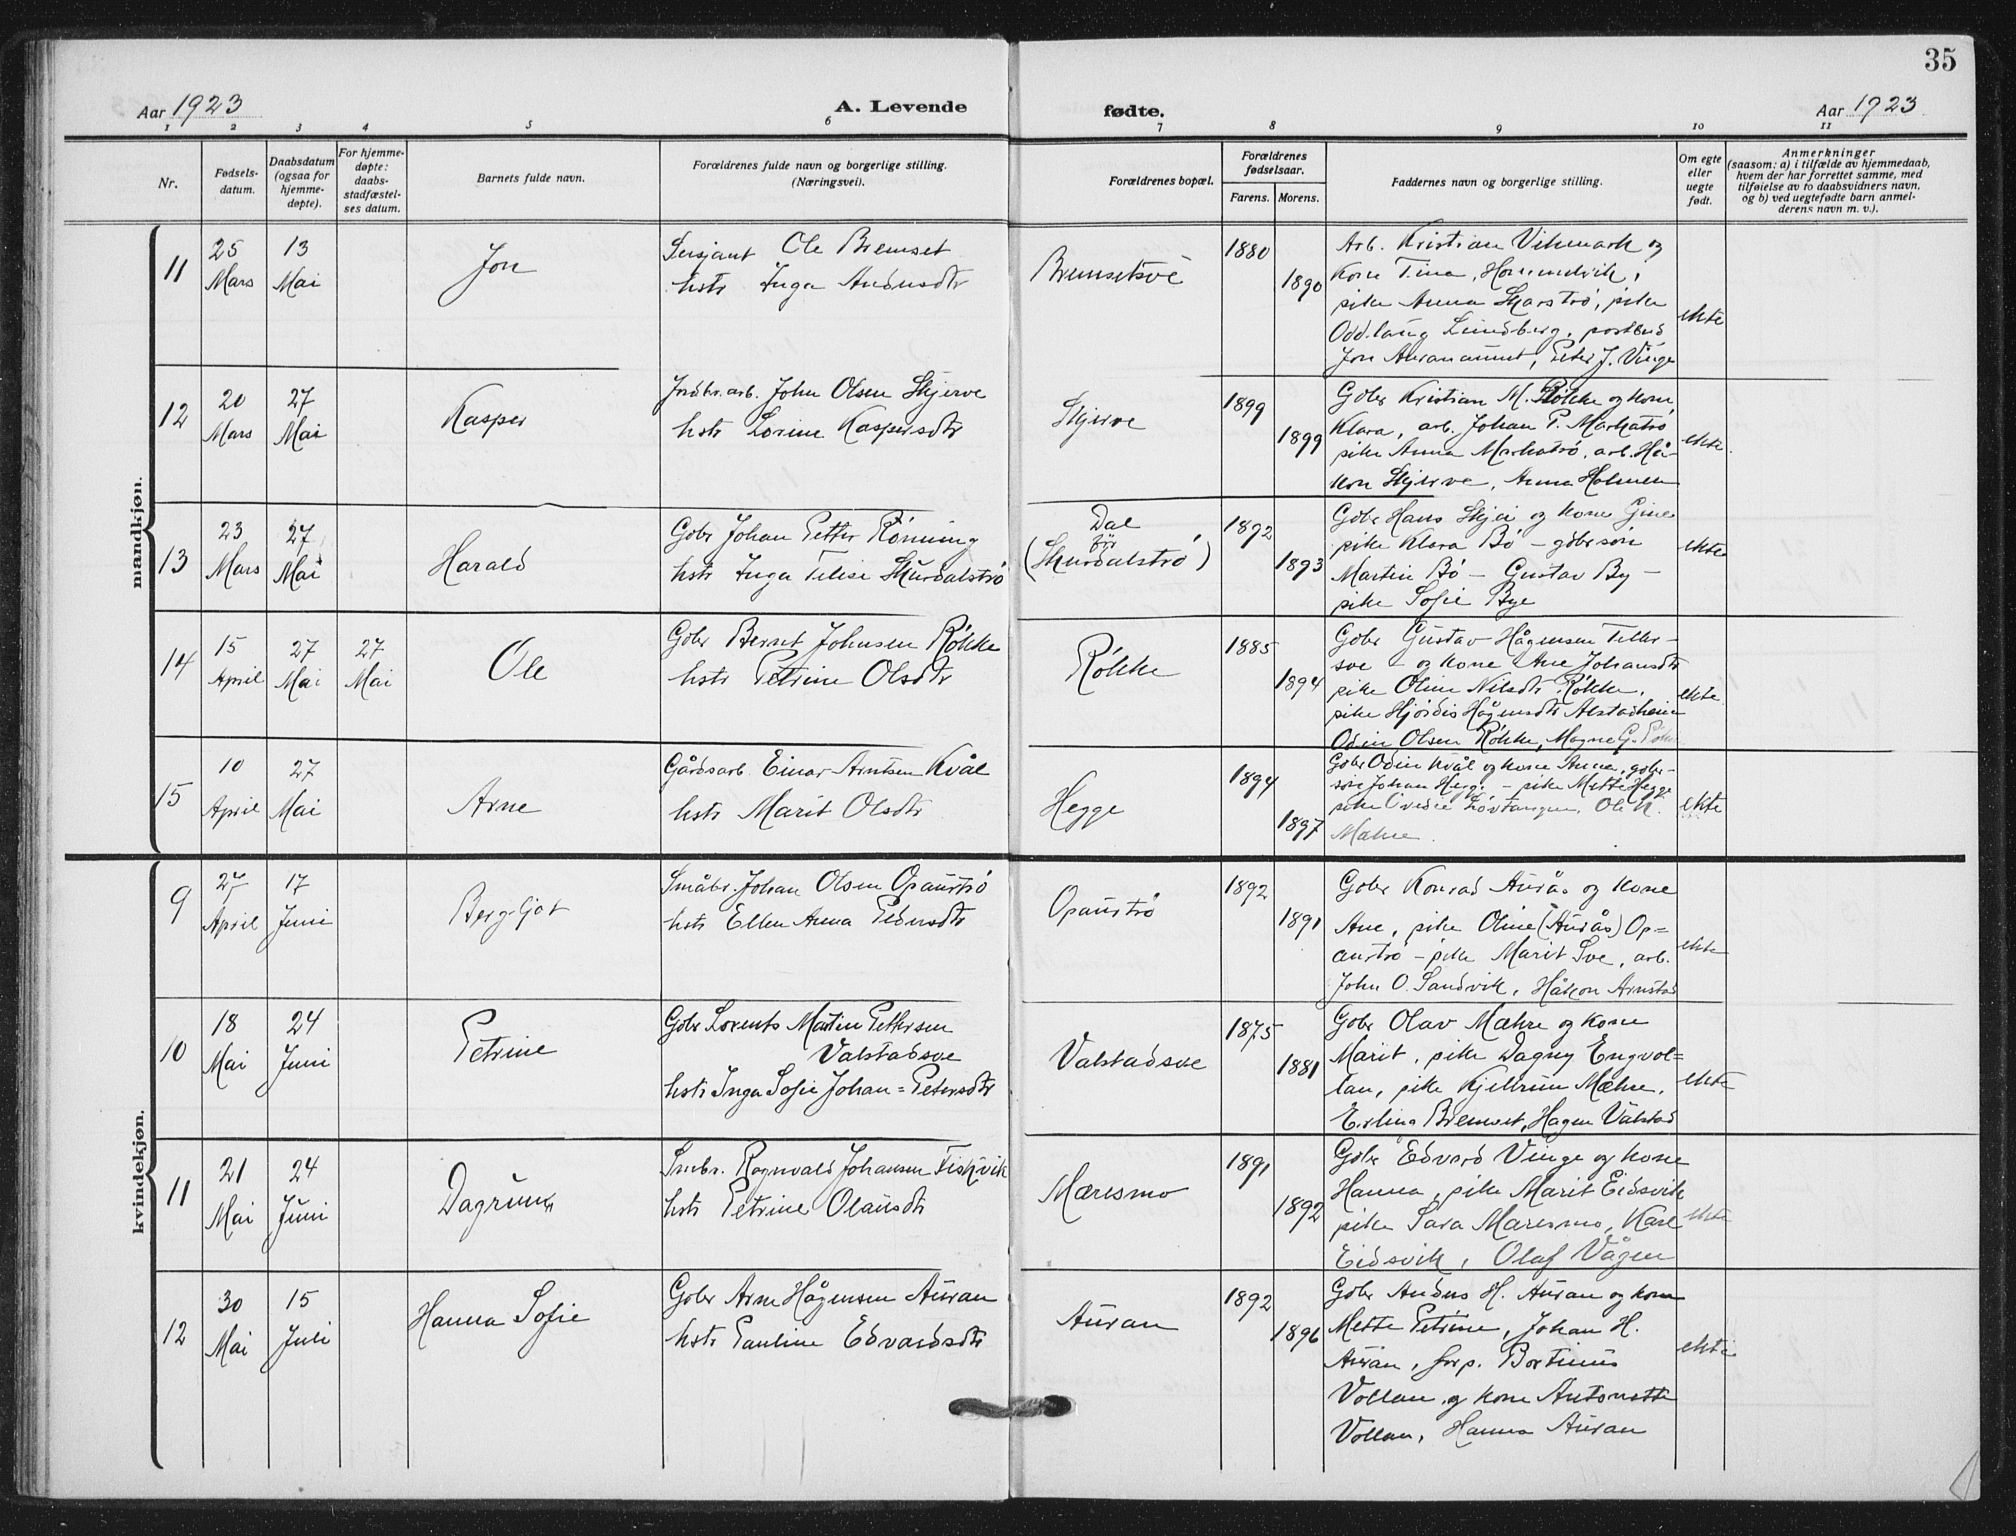 35
Aar 1923
A. Levende
fødte.
Aar 1923
1 2 3 4 5 6 7 8 9 10 11
Nr.
Fødsels-
datum.
Daabsdatum
(ogsaa for
hjemme-
døpte).
For hjemme-
døpte:
daabs-
stadfæstel-
ses datum.
Barnets fulde navn.
Forældrenes fulde navn og borgerlige stilling.
(Næringsvei).
Forældrenes bopæl.
Forældrenes
fødselsaar.
Farens. Morens.
Faddernes navn og borgerlige stilling.
Om egte
eller
uegte
født.
Anmerkninger
(saasom: a) i tilfælde av hjemmedaab,
hvem der har forrettet samme, med
tilføielse av to daabsvidners navn,
og b) ved uegtefødte barn anmel-
derens navn m. v.).
mandkjøn.
11
25
Mars
13
Mai
Jon
Sersjant Ole Bremset
hstr Inga
Bremsetsve
1880
1890
Arb. Kristian Vikmark og
Kone Tina, Hommelvik,
pike Anna Skarstrø, pike
Oddlaug Lundberg, postbud
Jon Auranaunet, Peter J. Vinge
ekte
12
20
Mars
27
Mai
Kasper
Jrdbr.arb. John Olsen Skjerve
hstr Lorine Kaspersdtr
Skjerve
1899
1899
Gbr Kristian M. Røkke og kone
Klara, arb. Johan P. Markatrø
pike Anna Markatrø, arb. Hå-
kon Skjerve, Anna Holmen
ekte
13
23
Mars
27
Mai
Harald
Gbr Johan Petter Rønning
hstr Inga Telise Skurdalstrø
Dal
før
(Skurdalstrø)
1892
1893
Gbr Hans Skjei og kone Gine
pike Klara Bø - gbrsøn
Martin Bø - Gustav By -
pike Sofie Bye
ekte
14
15
April
27
Mai
27
Mai
Ole
Gbr Bernt Johnsen Røkke
hstr Petrine Olsdtr
Røkke
1885
1894
Gbr Gustav Hågensen Teller-
sve - og kone Ane Johansdtr
pike Oline Nilsdtr Røkke,
pike Hjørdis Hågensdtr Alstadheim
Odin Olsen Røkke, Magne G.
ekte
15
10
April
27
Mai
Arne
Gårdsarb. Einar Arntsen Kvål
hstr Marit Olsdtr
Hegge
1894
1897
Gbr Odin Kvål og kone Anna, gbr-
søn Johan Hegge - pike Mette Hegge
pike Løvtangen, Ole K.
Mæhre.
ekte
kvindekjøn.
9
27
April
17
Juni
Bergljot
Småbr. Johan Olsen Opaustrø
hstr Ellen Anna
Opaustrø
1892
1891
Gbr Konrad Aurås og kone
Ane, pike Oline (Aurås) Op=
austrø - pike Marit Sve, arb.
John O. Sandvik, Håkon Arnstad
ekte
10
18
Mai
24
Juni
Petrine
Gbr Lorents Martin Pettersen
Valstadsve
hstr Inga Sofie Johan=Petersdtr
Valstadsve
1875
1881
Gbr Olav Mæhre og kone
Marit, pike Dagny Engvol=
lan, pike Kjellrun Mæhre,
Erling Bremset, Hagen Valstad
ekte
11
21
Mai
24
Juni
Dagrunn
Småbr. Ragnvald Johansen Fiskvik
hstr Petrine Olausdtr
Mæresmo
1891
1892
Gbr Edvard Vinge og kone
Hanna, pike Marit Eidsvik
pike Sara Mæresmo, Karl
Eidsvik, Olaf Vågen
ekte
12
30
Mai
15
Juli
Hanna Sofie
Gbr Arne Hågensen Auran
hstr Pauline Edvardsdtr
Auran
1892
1896
Gbr Anders H. Auran og kone
Mette Petrine, Johan H.
Auran, forp. Bortinus
Vollan og kone Antonette
Vollan, Hanna Auran
ekte